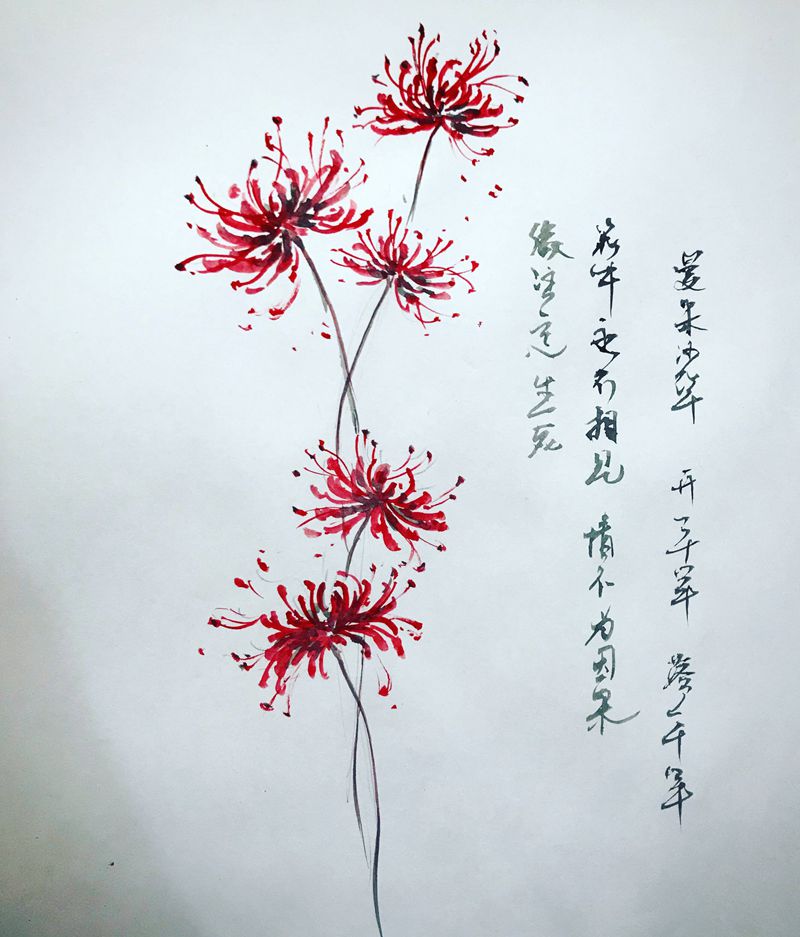 曼朱沙华 开一千年 落一千年
花叶永不相见 情不为因果
缘注定生死